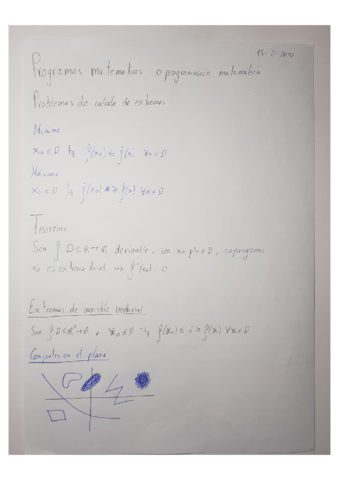 Programas matemáticos o programación matemática
Problemas de calculo de extremos
Mínimo
x₀ ∈ D tq f(x₀) ≤ f(x) ∀x ∈ D
Máximo
x₀ ∈ D tq f(x₀) ≥ f(x) ∀x ∈ D
Teorema
Sea f D⊂R→R derivable, sea x₀ ∈ D, supongamos
x₀ es extremo local ⇒ f'(x₀) = 0
Extremos de variable vectorial
Sea f D⊂Rⁿ→R, x₀ ∈ D tq f(x₀) ≤ ó ≥ f(x) ∀x ∈ D
Conjuntos en el plano